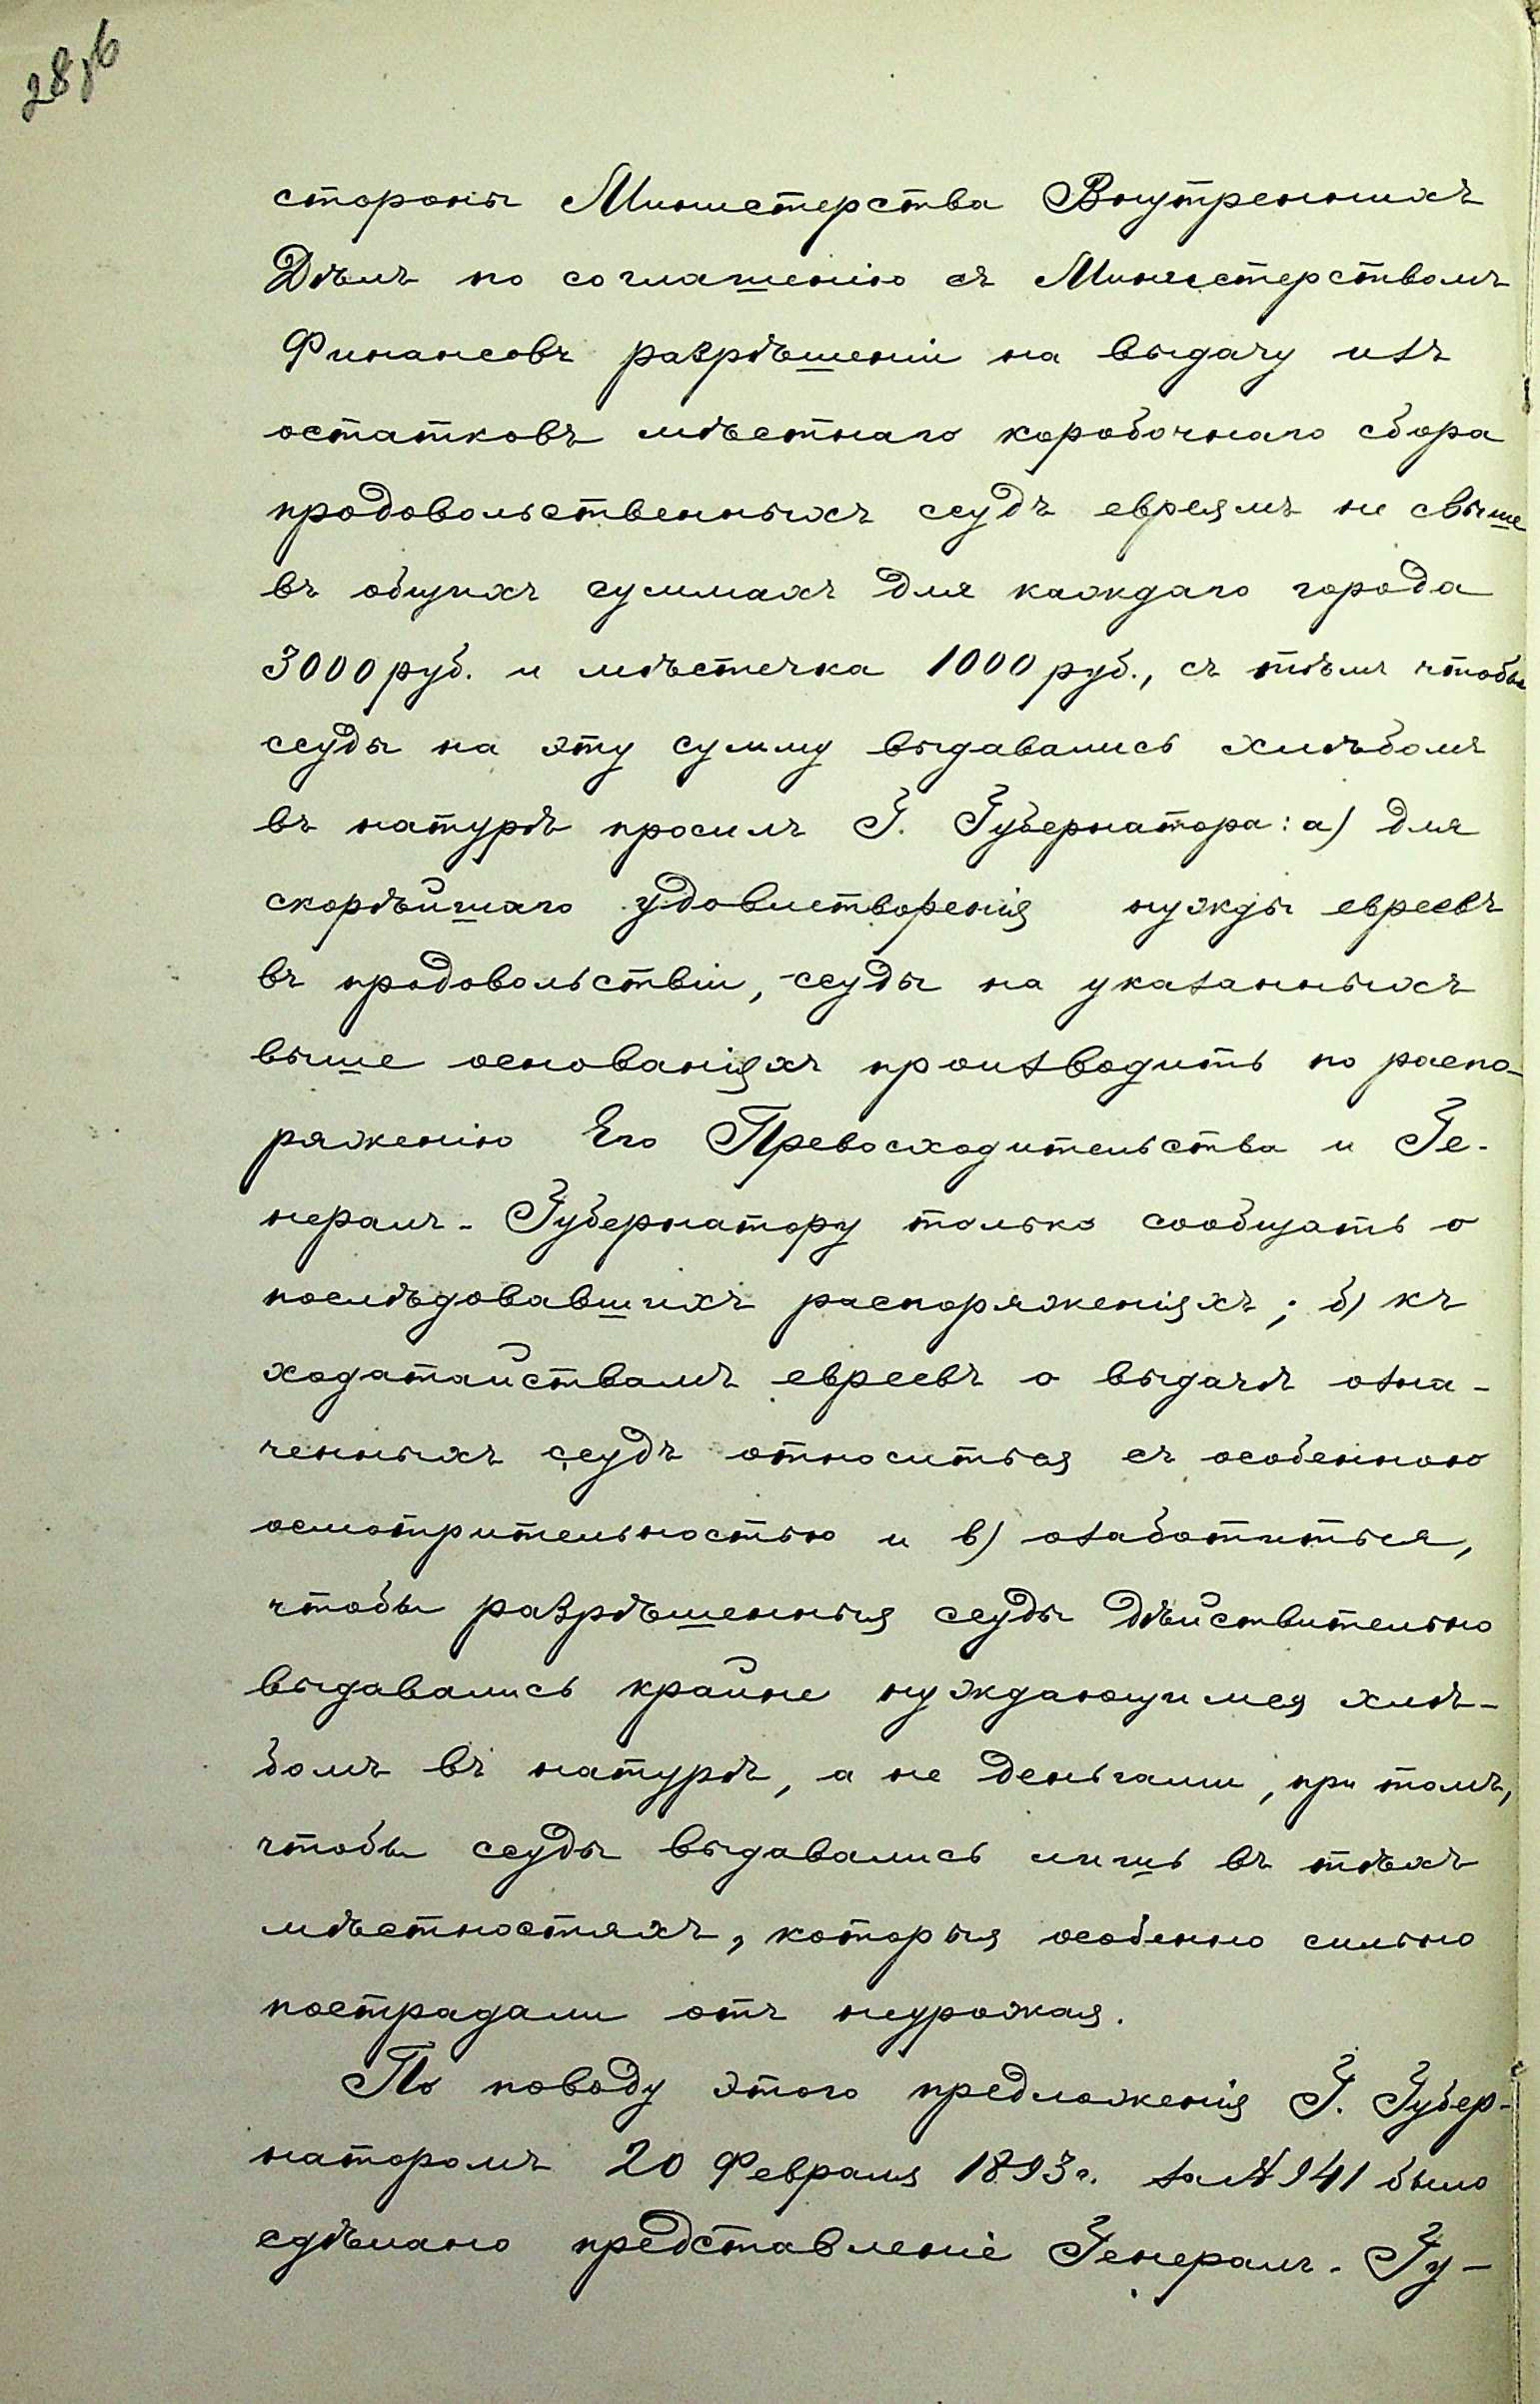 28 об
стороны Министерства Внутреннихъ
Дѣлъ по соглашенію съ Министерствомъ
Финансовъ разрѣшеніи на выдачу изъ
остатковъ мѣстнаго коробочнаго сбора
продовольственныхъ ссудъ евреямъ не свыше
въ общихъ суммахъ для каждаго города
3000 руб. и мѣстечка 1000 руб., съ тѣмъ чтобы
ссуды на эту сумму выдавались хлѣбомъ
въ натурѣ просилъ Г. Губернатора: а) для
скорѣйшаго удовлетворенія нужды евреевъ
въ продовольствіи, ссуды на указанныхъ
выше основаніяхъ производить по распо-
ряженію Его Превосходительства и Ге-
нералъ-Губернатору только сообщать о
послѣдовавшихъ распоряженіяхъ; б) къ
ходатайствамъ евреевъ о выдачѣ озна-
ченныхъ ссудъ относиться съ особенною
осмотрительностью и в) озаботиться,
чтобы разрѣшенныя ссуды дѣйствительно
выдавались крайне нуждающимся хлѣ-
бомъ въ натурѣ, а не деньгами, при томъ,
чтобы ссуды выдавались лишь въ тѣхъ
мѣстностяхъ, которыя особенно сильно
пострадали отъ неурожая.
По поводу этого предложенія Г. Губер-
наторомъ 20 Февраля 1893 г. за № 941 было
сдѣлано представленіе Генералъ-Гу-